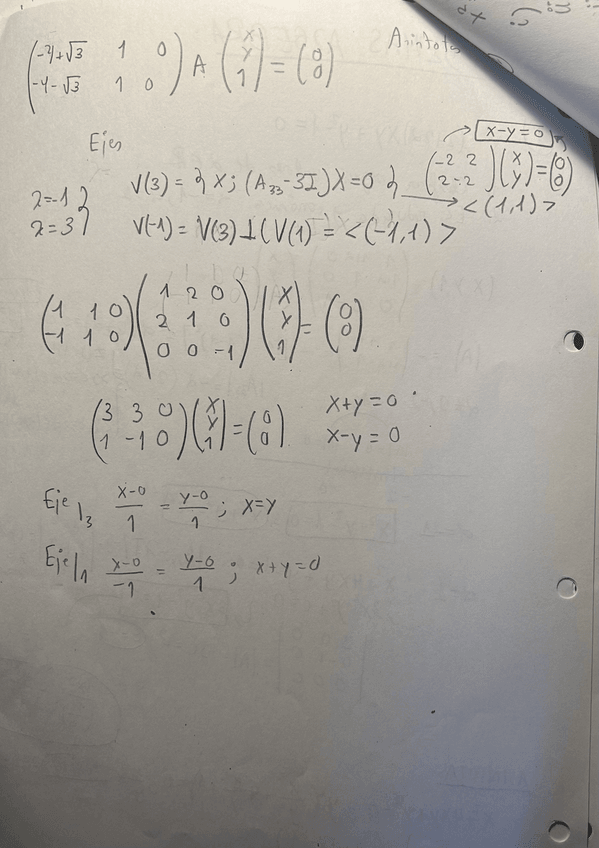 (-2+√3 1 0
-4-√3 1 0) A (x y 1) = (0 0) Asintotas
Ejes
λ=-1
λ=3 }
V(3) = { X; (A33-3I)X=0 }
(-2 2
2 -2)(x y)=(0 0)
x-y=0
<(1,1)>
V(-1) = V(3)⊥(V(1) = <(-1,1)>
(1 1 0
-1 1 0)(1 2 0
2 1 0
0 0 -1)(x x 1) = (0 0)
(3 3 0
1 -1 0)(x y 1) = (0 0)
x+y=0
x-y=0
Eje|3 x-0/1 = y-0/1 ; x=y
Eje|1 x-0/-1 = y-0/1 ; x+y=0